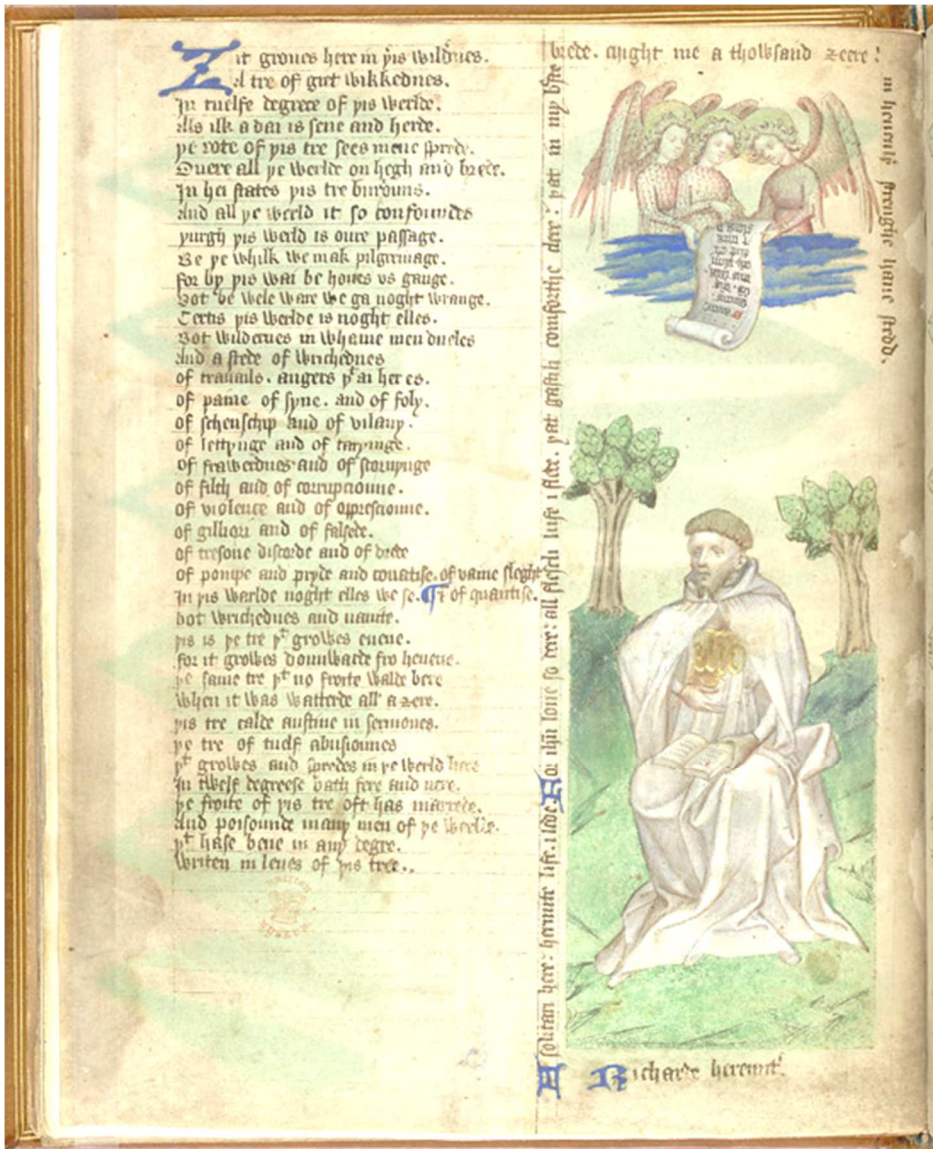 Ȝit groues here in þis wildrnes.
A tre of gret wikkednes.
In tuelfe degrece of þis werlde.
Als ilk a dai is sene and herde.
þe rote of þis tre sees mene sprede.
Ouere all þe werlde on hegh and brede.
In hei states þis tre buriouns.
And all þe werld it so confoundes
þurgh þis werld is oure passage.
Be þe whilk we mak pilgrimage.
for by þis wai be houes vs gange.
Bot be wele ware we ga noght wrange.
Certis þis werlde is noght elles.
Bot wildernes in whame men duelles
And a stede of wrichednes
of trauails. angers þt ai her es.
of paine of syne. and of foly.
of schenschip and of vilany.
of lettynge and of taryinge.
of frawerdnes and of storuynge
of filth and of corrupcioune.
of violence and of oppressioune.
of gillori and of falsede.
of tresone discorde and of drede
of pompe and pryde and couatise. of vaine sleght
In þis warlde noght elles we se. ¶ & of quantise.
bot wrichednes and vanite.
þis is þe tre þt growes euene.
for it growes dounwarde fro heuene.
þe same tre þt no froite walde bere
when it was watterde all a ȝere.
þis tre calde austine in sermones.
þe tre of tuelf abusiounes
þt growes and spredes in þe werld here
In twelf degreese bath fere and nere.
þe froite of þis tre oft has marrede.
And poisounde many men of þe werlde.
þt hase bene in any degre.
writen in leues of þis tree.
A solitari here: hermite life. i lede. For ihu loue so dere: all flesch lufe i flede. þat gastli comforthe dere: þat in my breste
brede. might me a thowsand ȝeere:
in heuenly strenghe haue stedd.
Richarde heremite